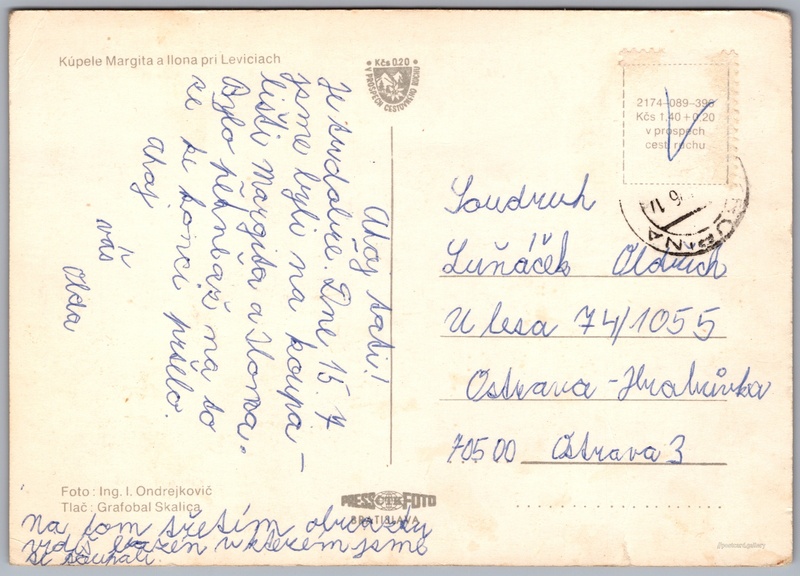 Kúpele Margita a Ilona pri Leviciach
Kčs 0.20
V PROSPECH CESTOVNÉHO RUCHU
2174-089-396
Kčs 1,40 + 0,20
v prospech
cest. ruchu
Ahoj tati!
Je tu dobře. Dne 15. 7
jsme byli na koupa-
lišti Margita a Ilona.
Bylo pěkně až na to
že ke konci pršelo.
Ahoj
váš
Olda
Soudruh
Luňáček Oldřich
U lesa 74/1055
Ostrava-Hrabůvka
705 00 Ostrava 3
Foto: Ing. I. Ondrejkovič
Tlač: Grafobal Skalica
PRESS ČTK FOTO
BRATISLAVA
Na tom třetím obrázku
vidíš bazén v kterém jsme
se koupali.